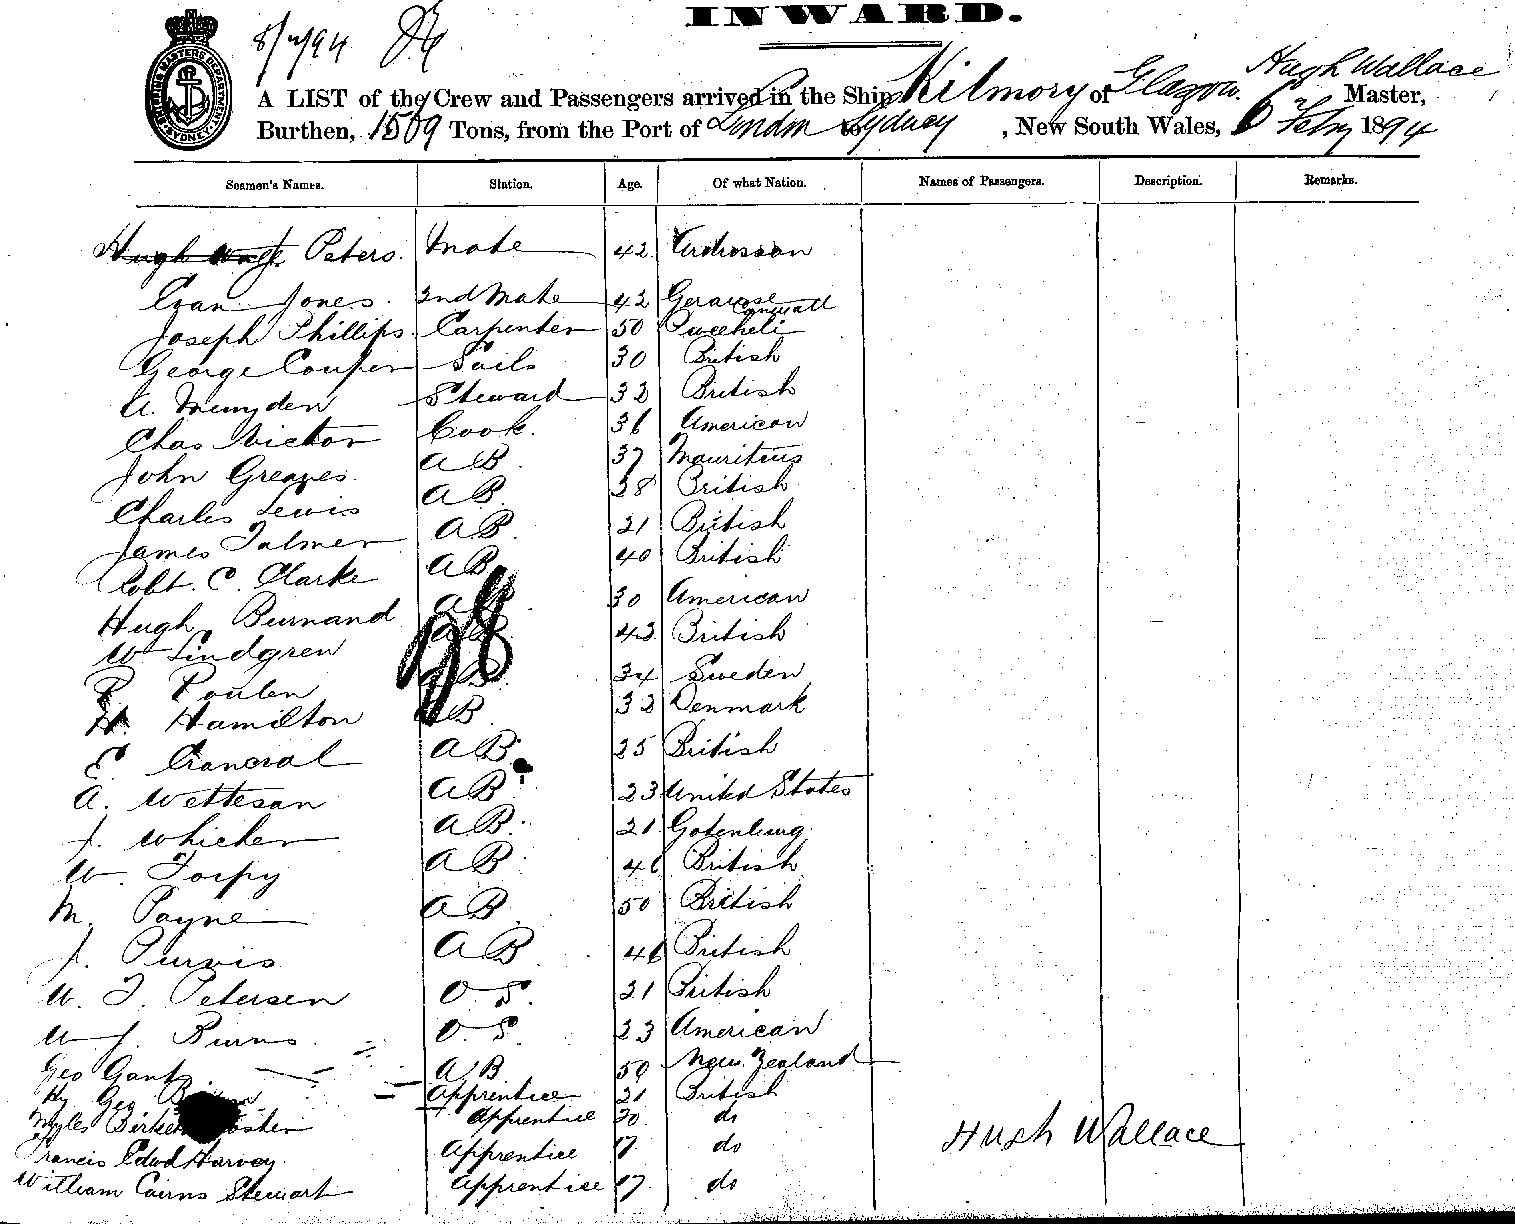 INWARD.
8/2/94
SHIPPING MASTERS DEPARTMENT SYDNEY
Hugh Wallace
A LIST of the Crew and Passengers arrived in the Ship Kilmory of Glasgow. Master,
Burthen, 1509 Tons, from the Port of London to Sydney, New South Wales, 6 Febry 1894
Seamen's Names. Station. Age. Of what Nation. Names of Passengers. Description. Remarks.
Hugh Peters. Mate 42 Ardrossan
Evan Jones. 2nd Mate 42
Cornwall
Joseph Phillips. Carpenter 50 Pwccheli
George Couper Sails 30 British
A. Steward 32 British
Chas Victor Cook. 36 American
John Greaves. AB. 37 Mauritius
Charles Lewis AB. 28 British
James Talmer AB. 21 British
Robt. C. Clarke AB. 40 British
Hugh Burnand AB. 30 American
W Lindgren AB. 43 British
P Poulen AB. 34 Sweden
H. Hamilton AB. 32 Denmark
E. AB. 25 British
A. Wettesan AB. 23 United States
J. Whicker AB. 21 Gotenburg
W. Torpy AB. 46 British
M. Payne AB. 50 British
J. Purvis AB. 46 British
W. T. Petersen O.S. 21 British
W J. Burns. O.S. 23 American
Geo Gantz AB 50 New Zealand
Hy Geo Apprentice 21 British
Myles Apprentice 20 do
Francis Edwd Harvey. Apprentice 17. do
William Cairns Stewart Apprentice 17. do
28
Hugh Wallace